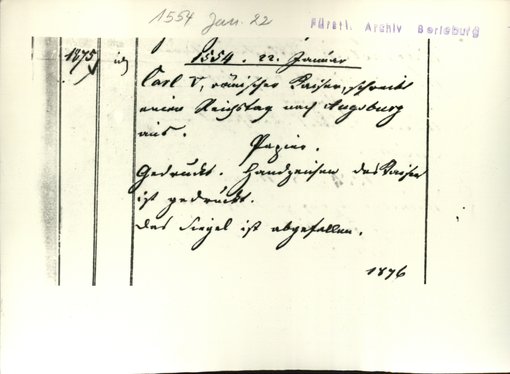 1554 Jan. 22
Fürstl. Archiv Berleburg
1875
1554. 22. Januar
Carl V, römischer Kaiser, schreibt
einen Reichstag nach Augsburg
aus.
Papier.
Gedruckt. Handzeichen des Kaisers
ist gedruckt.
das Siegel ist abgefallen.
1876